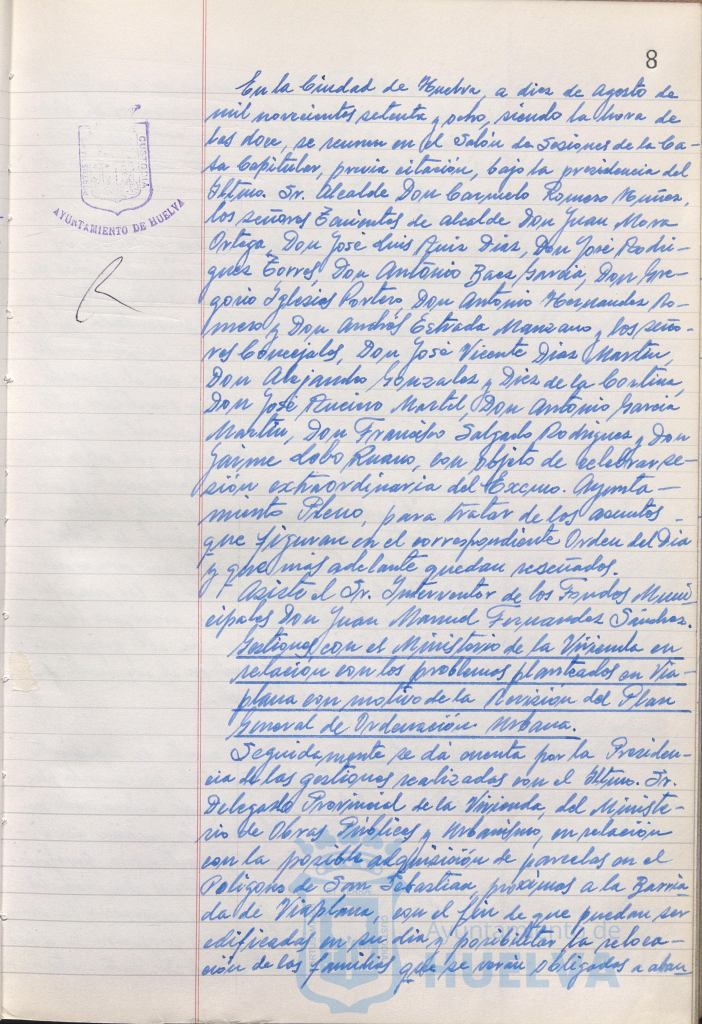 8
En la Ciudad de Huelva, a diez de Agosto de
mil novecientos setenta y ocho, siendo la hora de
las doce, se reunen en el Salón de Sesiones de la Ca-
sa Capitular, previa citación, bajo la presidencia del
Iltmo. Sr. Alcalde Don Carmelo Romero Núñez,
los señores Tenientes de alcalde Don Juan Mora
Ortega, Don José Luis Ruiz Díaz, Don José Rodrí-
guez Torres, Don Antonio Baez García, Don Gre-
gorio Iglesias Portero, Don Antonio Hernandez Ro-
mero y Don Andrés Estrada Manzano y los seño-
res Concejales, Don José Vicente Diaz Martin,
Don Alejandro Gonzalez y Diez de la Cortina,
Don José Ruciero Martel, Don Antonio Garcia
Martin, Don Francisco Salgado Rodriguez y Don
Jaime Lobo Ruano, con objeto de celebrar se-
sión extraordinaria del Excmo. Ayunta-
miento Pleno, para tratar de los asuntos
que figuran en el correspondiente Orden del Día
y que más adelante quedan reseñados.
Asiste el Sr. Interventor de los Fondos Muni-
cipales Don Juan Manuel Fernandez Sánchez.
Gestiones con el Ministerio de la Vivienda en
relación con los problemas planteados en Via-
plana con motivo de la Revisión del Plan
General de Ordenación Urbana.
Seguidamente se dá cuenta por la Presiden-
cia de las gestiones realizadas con el Iltmo. Sr.
Delegado Provincial de la Vivienda, del Ministe-
rio de Obras Públicas y Urbanismo, en relación
con la posible adquisición de parcelas en el
Polígono de San Sebastian, próximos a la Barria-
da de Viaplana, con el fin de que puedan ser
edificadas en su día y posibilitar la reloca-
ción de las familias que se verán obligados a aban
AYUNTAMIENTO DE HUELVA
Ayuntamiento de
HUELVA